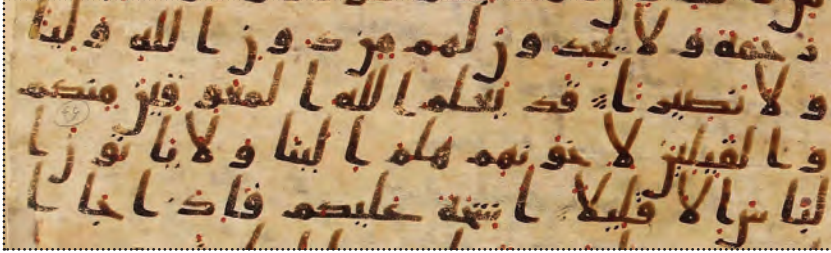 رحمه ولا يجدون لهم من دون الله وليا
ولا نصيرا قد يعلم الله المعوقين منكم
والقيلين لاخونهم هلم الينا ولا ياتون ا
لباس الا قليلا اشحه عليكم فاذا جا ا